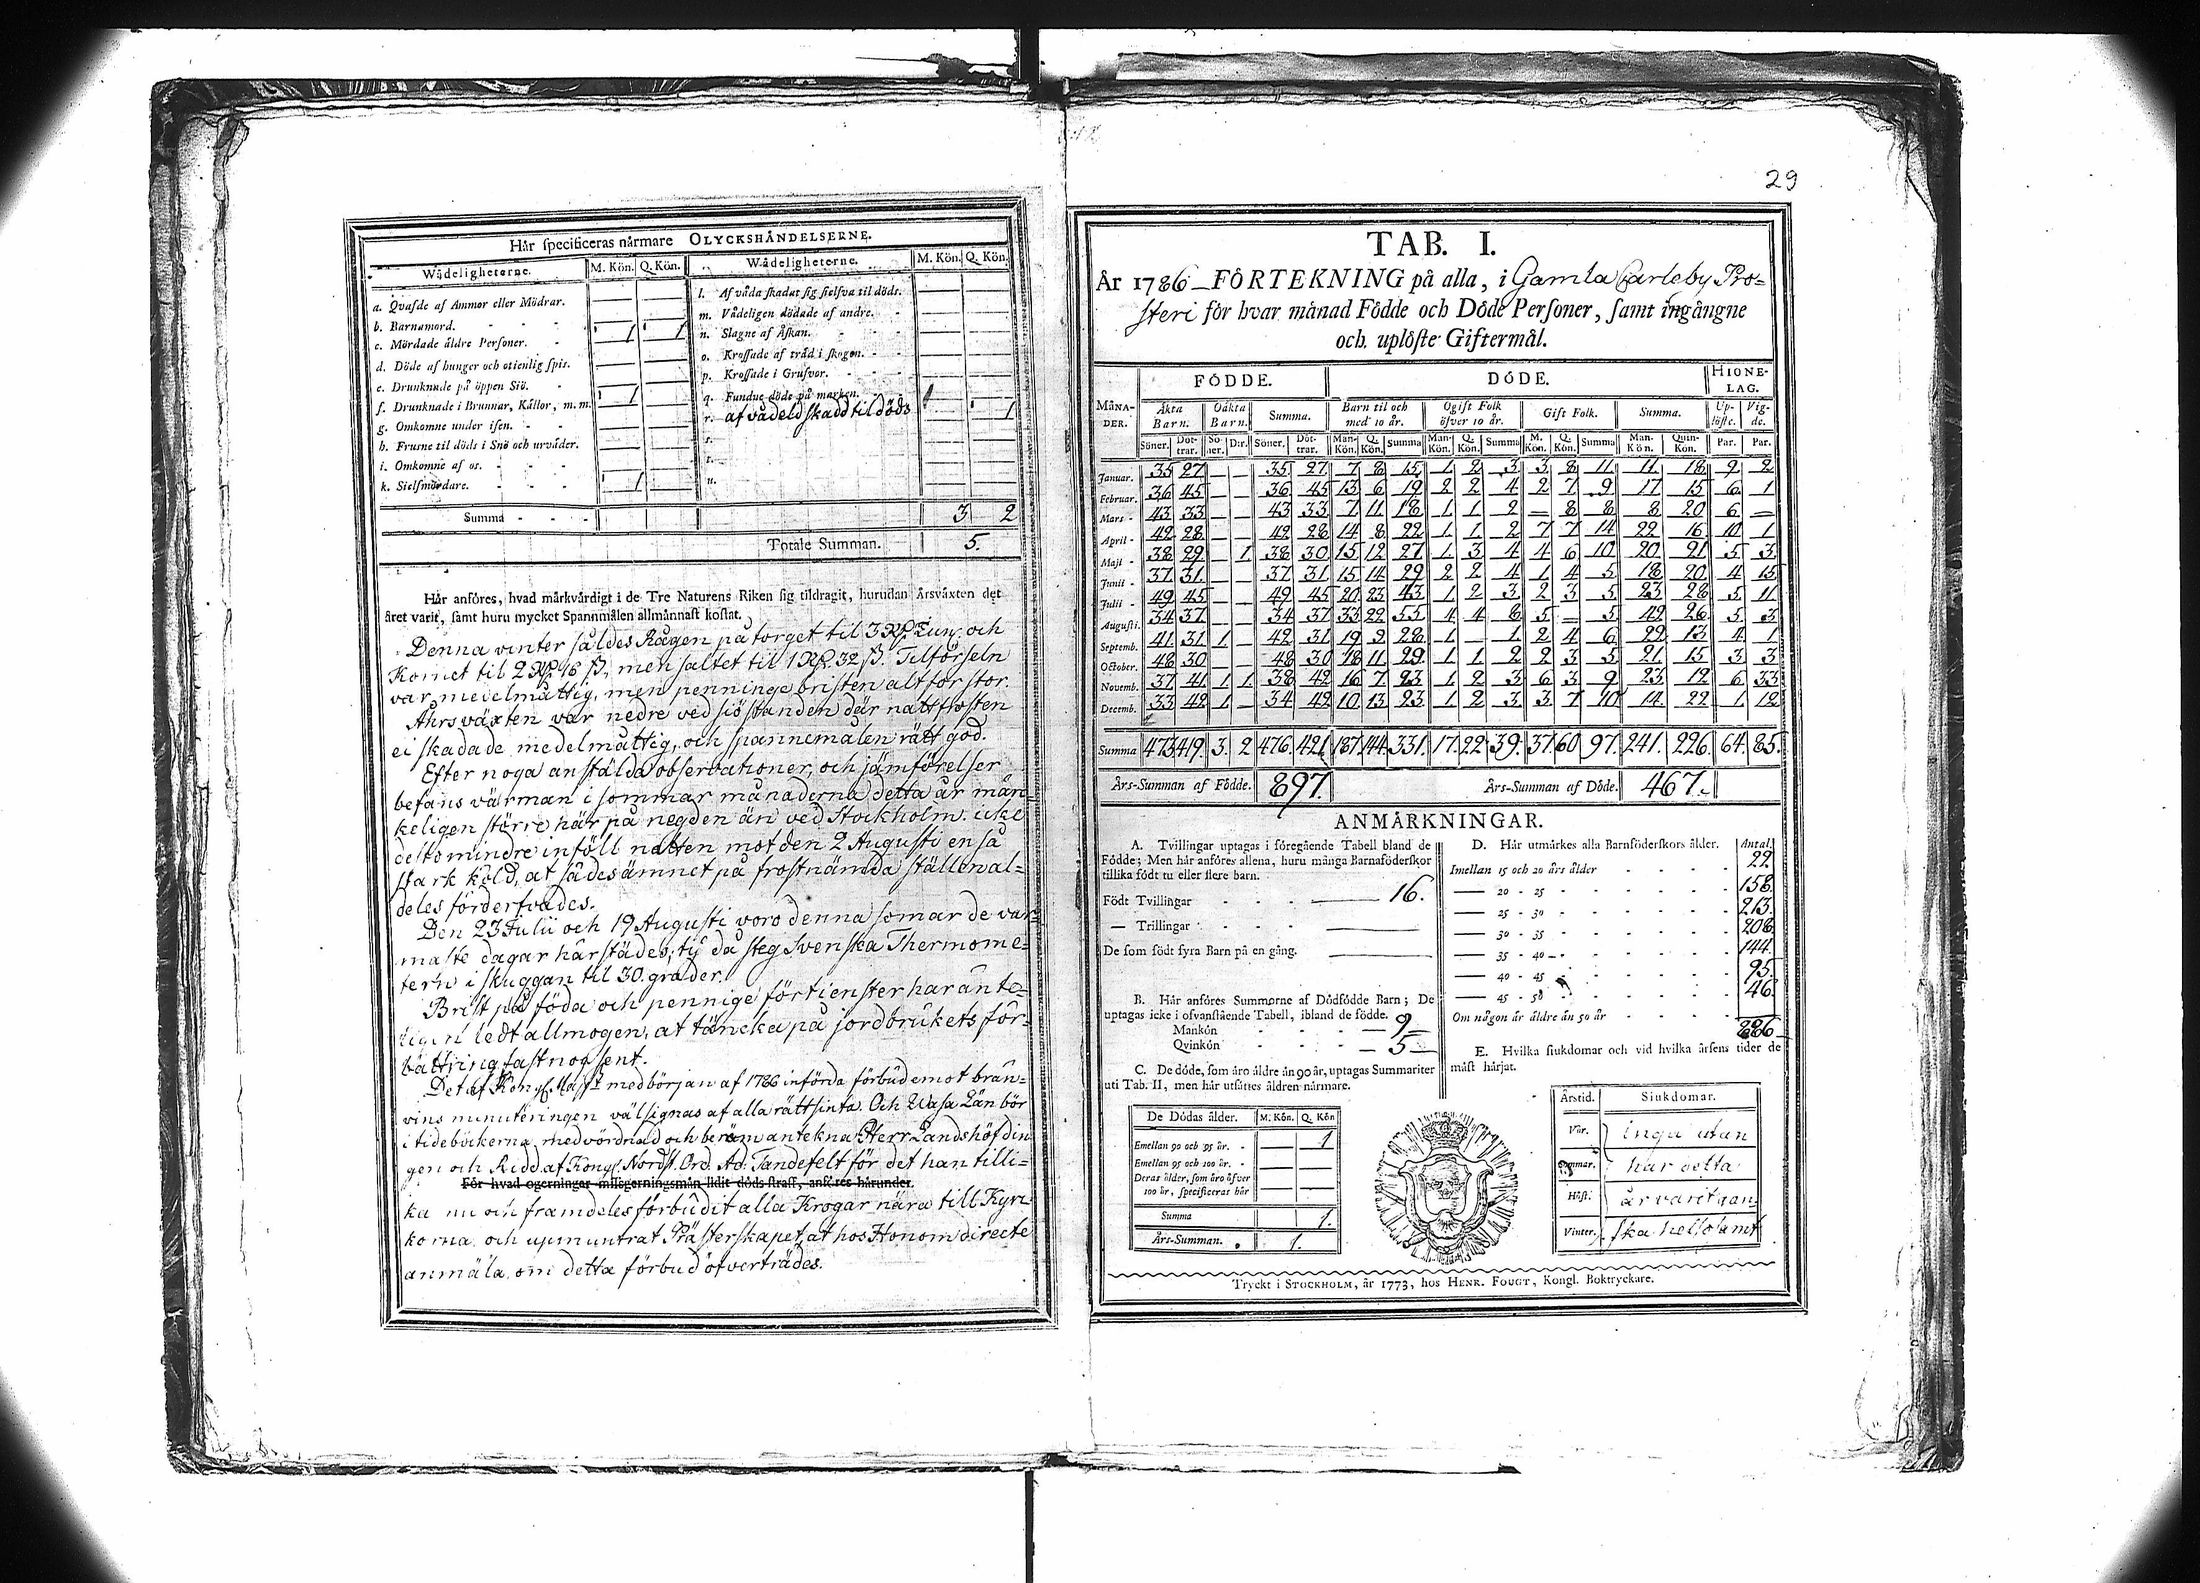 Hår specificeras nårmare OLYCKSHÅNDELSERNE.
Wådeligheterne. M. Kön. Q. Kön. Wådeligheterne. M. Kön. Q. Kön.
a. Qvafde af Ammor eller Mödrar. — — l. Af våda skadat sig sielfva til döds. — —
b. Barnamord. - - - — — m. Vådeligen dödade af andre. - — —
c. Mördade äldre Personer. - 1 1 n. Slagne af Åskan. - - — —
d. Döde af hunger och otienlig spis. — — o. Krossade af träd i skogen. - - — —
e. Drunknade på öppen Siö. - — — p. Krossade i Grufvor. - - - — —
f. Drunknade i Brunnar, Kållor, m. m. 1 — q. Fundne döde på marken. 
g. Omkomne under isen. - - — — r. af vådeld skadd til döds — 1
h. Frusne til döds i Snö och urväder. — — s.
i. Omkomne af os. - - - — — t.
k. Sielfmördare. - - - 1 — u.
Summa - - - 3 2
Totale Summan. 5.
Hår anföres, hvad mårkvårdigt i de Tre Naturens Riken sig tildragit, hurudan Årsvåxten det
året varit, samt huru mycket Spannmålen allmånnast kostat.
Denna vinter såldes Rågen på torget til 3 Rd. Tun: och
Kornet til 2 Rd. 16 ß, men saltet til 1 Rd. 32 ß. Tilförseln
var medelmåttig, men penninge bristen alt för stor.
Åhrsväxten var nedre ved siöstranden där nattfrosten
ei skadade medelmåttig, och spannemålen rätt god.
Efter noga anstälda observationer, och jämförelser
befans värman i sommar månaderna detta år mär-
keligen större här på negden än ved Stockholm: icke
desto mindre inföll natten mot den 2 Augusti en så
stark köld, at sädesämnet på frostnämda ställen al-
deles förderfvades.
Den 23 Julii och 19 Augusti voro denna somar de var-
maste dagar härstädes, ty då steg Svenska Thermome-
tern i skuggan til 30. grader.
Brist på föda och pennige förtienster har änte-
ligen ledt allmogen, at täncka på jordbrukets för-
bättring fast nog sent.
Det af Kongl. Maj:t med början af 1786 införda förbud emot brän-
vins minuteringen välsignas af alla rättsinta. Och Wasa Län bör
i tideböckerna med vördnad och beröm antekna Herr Landshöfdin
gen och Ridd. af Kongl. Nordst. Ord. Ad. Tandefelt för det han tilli-
För hvad ogerningar missgerningsmån lidit döds straff, anföres hårunder.
ka nu och framdeles förbudit alla Krogar nära till Kyr-
korna och upmuntrat Prästerskapet, at hos Honom directe
anmäla, om detta förbud öfverträdes.
29
TAB. I.
År 1786 FÖRTEKNING på alla, i Gamla Carleby Pro-
steri för hvar månad Födde och Döde Personer, samt ingångne
och uplöste Giftermål.
MÅNA-DER. FÖDDE. DÖDE. HIONE-LAG.
Åkta Barn. Oåkta Barn. Summa. Barn til och med 10 år. Ogift Folk öfver 10 år. Gift Folk. Summa. Up-löste. Vig-de.
Söner. Döt-trar. Sö-ner. D:r. Söner. Döt-trar. Man-Kön. Q. Kön. Summa Man-Kön. Q. Kön. Summa M. Kön. Q. Kön. Summa Man-Kön. Quin-Kön. Par. Par.
Januar. 35 27 — — 35 27 7 8 15 1 2 3 3 8 11 11 18 9 2
Februar. 36 45 — — 36 45 13 6 19 2 2 4 2 7 9 17 15 6 1
Mars - 43 33 — — 43 33 7 11 18 1 1 2 — 8 8 8 20 6 —
April - 42 28 — — 42 28 14 8 22 1 1 2 7 7 14 22 16 10 1
Maji - 38 29 — 1 38 30 15 12 27 1 3 4 4 6 10 20 21 5 3
Junii - 37 31 — — 37 31 15 14 29 2 2 4 1 4 5 18 20 4 15
Julii - 49 45 — — 49 45 20 23 43 1 2 3 2 3 5 23 28 5 11
Augusti. 34 37 — — 34 37 33 22 55 4 4 8 5 — 5 42 26 5 3
Septemb. 41 31 1 — 42 31 19 9 28 1 — 1 2 4 6 22 13 4 1
October. 48 30 — — 48 30 18 11 29 1 1 2 2 3 5 21 15 3 3
Novemb. 37 41 1 1 38 42 16 7 23 1 2 3 6 3 9 23 12 6 33
Decemb. 33 42 1 — 34 42 10 13 23 1 2 3 3 7 10 14 22 1 12
Summa 473 419. 3. 2 476. 421 187. 144. 331. 17. 22. 39. 37. 60. 97. 241. 226. 64. 85.
Års-Summan af Födde. 897. Års-Summan af Döde. 467.
ANMÅRKNINGAR.
A. Tvillingar uptagas i föregående Tabell bland de
Födde; Men hår anföres allena, huru många Barnaföderskor
tillika födt tu eller flere barn.
Födt Tvillingar - - - — 16.
— Trillingar - - - —
De som födt fyra Barn på en gång. —
B. Hår anföres Summorne af Dödfödde Barn; De
uptagas icke i ofvanstående Tabell, ibland de födde.
Mankön - - - — 9 —
Qvinkön - - - — 5 —
C. De döde, som åro åldre ån 90 år, uptagas Summariter
uti Tab. II, men hår utsåttes åldren nårmare.
De Dödas ålder. M. Kön. Q. Kön
Emellan 90 och 95 år. - — 1
Emellan 95 och 100 år. - — —
Deras ålder, som åro öfver
100 år, specificeras hår — —
Summa 1.
Års-Summan. 1.
D. Hår utmårkes alla Barnföderskors ålder. Antal.
Imellan 15 och 20 års ålder - - - 22.
— 20 - 25 - - - 158.
— 25 - 30 - - - 213.
— 30 - 35 - - - 208.
— 35 - 40 - - - 144.
— 40 - 45 - - - 95.
— 45 - 50 - - - 46.
Om någon år åldre ån 50 år - - - —
886
E. Hvilka siukdomar och vid hvilka årsens tider de
måst hårjat.
Årstid. Siukdomar.
Vår. inga utan
Sommar. har detta
Höst. år varit gan-
Vinter. ska helsosamt
Tryckt i STOCKHOLM, år 1773, hos HENR. FOUGT, Kongl. Boktryckare.